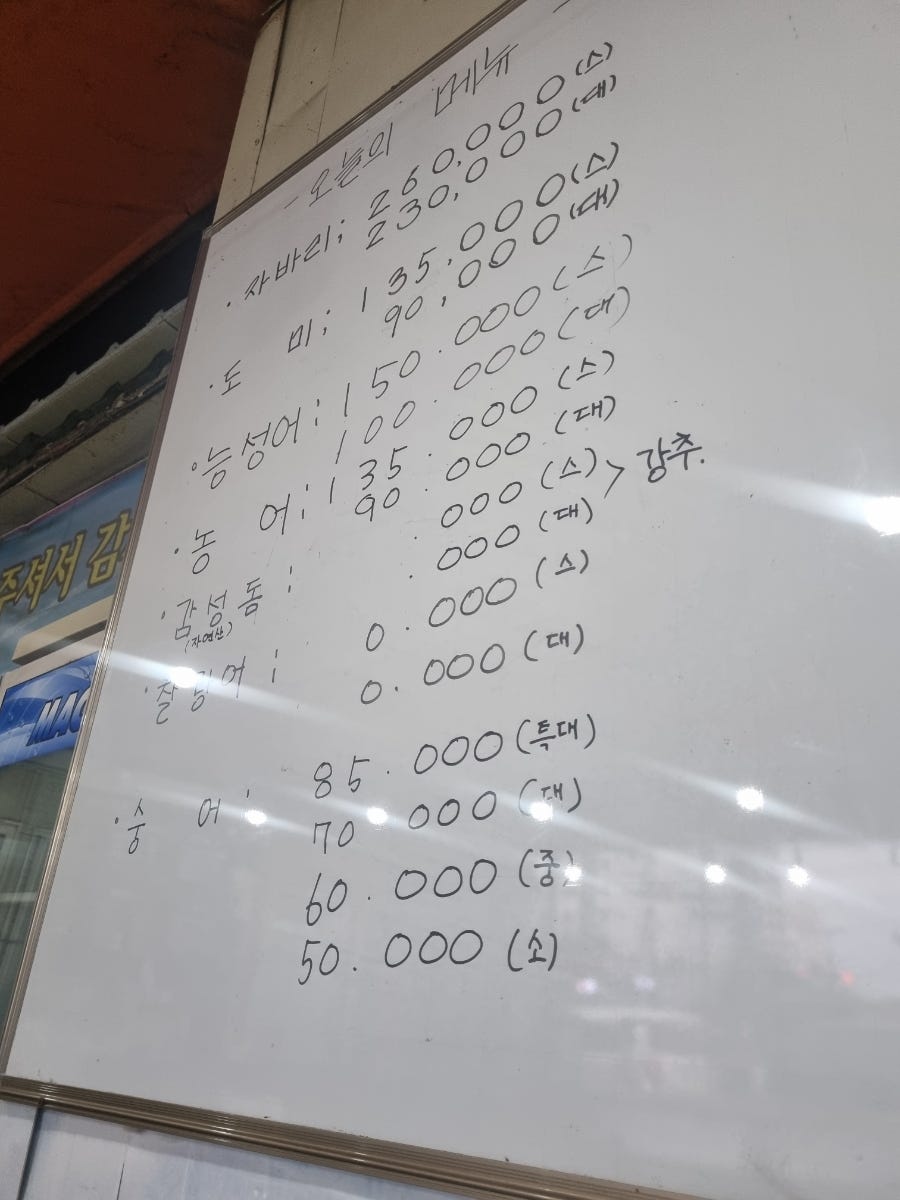 - 오늘의 메뉴 -
· 자바리; 260,000(스)
230,000(대)
· 도 미; 135,000(스)
90,000(대)
· 능성어; 150.000(스)
100.000(대)
· 농 어; 135.000(스)
90.000(대)
· 감성돔 : .000(스) > 강추.
(자연산) .000(대)
0.000(스)
0.000(대)
· 숭 어: 85.000(특대)
70 000(대)
60.000(중)
50.000(소)
주셔서 감
MAC